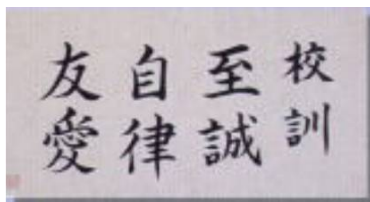 校訓
至誠
自律
友愛